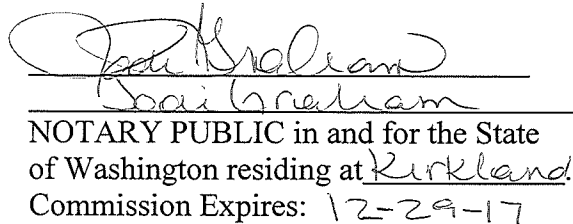 Jodi Graham
Jodi Graham
NOTARY PUBLIC in and for the State
of Washington residing at Kirkland.
Commission Expires: 12-29-17